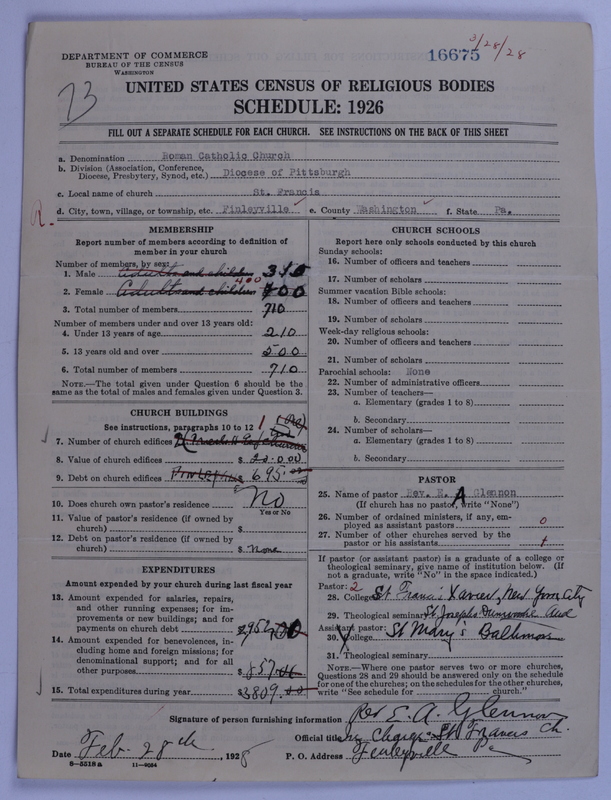 DEPARTMENT OF COMMERCE
BUREAU OF THE CENSUS
WASHINGTON
16675
3/28/28
73
UNITED STATES CENSUS OF RELIGIOUS BODIES
SCHEDULE: 1926
FILL OUT A SEPARATE SCHEDULE FOR EACH CHURCH. SEE INSTRUCTIONS ON THE BACK OF THIS SHEET
a. Denomination Roman Catholic Church
b. Division (Association, Conference, Diocese, Presbytery, Synod, etc.) Diocese of Pittsburgh
c. Local name of church St. Francis
R. d. City, town, village, or township, etc. Finleyville e. County Washington f. State Pa.
MEMBERSHIP
Report number of members according to definition of
member in your church
Number of members, by sex:
1. Male Adults and children 310
2. Female Adults and children 400 400
3. Total number of members 710
Number of members under and over 13 years old:
4. Under 13 years of age 210
5. 13 years old and over 500
6. Total number of members 710
NOTE.—The total given under Question 6 should be the
same as the total of males and females given under Question 3.
CHURCH BUILDINGS
See instructions, paragraphs 10 to 12 1 (One)
7. Number of church edifices
8. Value of church edifices $
9. Debt on church edifices 695
10. Does church own pastor's residence No
Yes or No
11. Value of pastor's residence (if owned by
church) $
12. Debt on pastor's residence (if owned by
church) $ None
EXPENDITURES
Amount expended by your church during last fiscal year
13. Amount expended for salaries, repairs,
and other running expenses; for im-
provements or new buildings; and for
payments on church debt $
14. Amount expended for benevolences, in-
cluding home and foreign missions; for
denominational support; and for all
other purposes $ 857.00
15. Total expenditures during year $3809.00
CHURCH SCHOOLS
Report here only schools conducted by this church
Sunday schools:
16. Number of officers and teachers
17. Number of scholars
Summer vacation Bible schools:
18. Number of officers and teachers
19. Number of scholars
Week-day religious schools:
20. Number of officers and teachers
21. Number of scholars
Parochial schools: None
22. Number of administrative officers
23. Number of teachers—
a. Elementary (grades 1 to 8)
b. Secondary
24. Number of scholars—
a. Elementary (grades 1 to 8)
b. Secondary
PASTOR
25. Name of pastor Rev. E. A Glennon
(If church has no pastor, write "None")
26. Number of ordained ministers, if any, em-
ployed as assistant pastors 0
27. Number of other churches served by the
pastor or his assistants 1
If pastor (or assistant pastor) is a graduate of a college or
theological seminary, give name of institution below. (If
not a graduate, write "No" in the space indicated.)
Pastor: 2
28. College St Francis Xavier, New York City
29. Theological seminary St Josephs Dunwoodie and
Assistant pastor:
30. College St Mary's Baltimore
31. Theological seminary
NOTE.—Where one pastor serves two or more churches,
Questions 28 and 29 should be answered only on the schedule
for one of the churches; on the schedules for the other churches,
write "See schedule for church."
Signature of person furnishing information Rev E. A. Glennon
Official title In Charge St Francis Ch.
Date Feb 28th, 1928 P. O. Address Finleyville Pa
8—5518a 11—9054